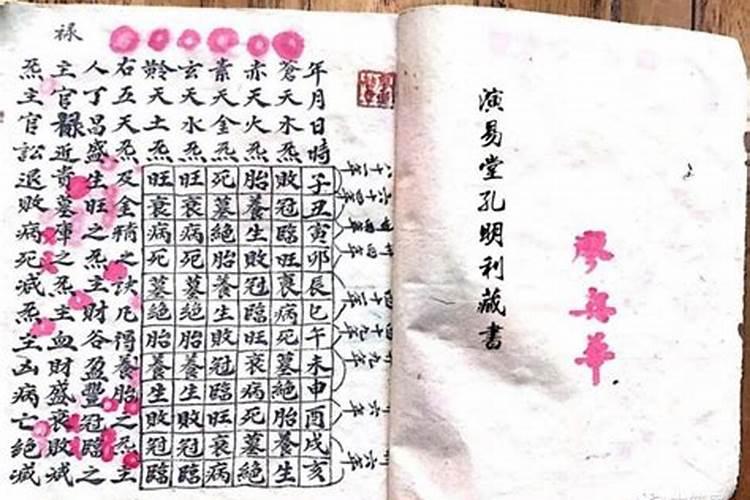 演易堂孔明利藏書
華
祿
年月日時子丑寅卯辰巳午未申酉戌亥
蒼天木炁敗冠臨旺衰病死墓絶胎養生
赤天火炁胎養生敗冠臨旺衰病死墓絶
素天金炁死墓絶胎養生敗冠臨旺衰病
玄天水炁旺衰病死墓絶胎養生敗冠臨
黅天土炁旺衰病死墓絶胎養生敗冠臨
右五天炁及金精之訣凡得養胎之炁主
人丁昌盛生旺之炁主財谷盈豐冠臨之
主官祿近貴墓庫之炁主血財盛衰敗滅
炁主官訟退敗病死滅炁主凶病亡絶滅